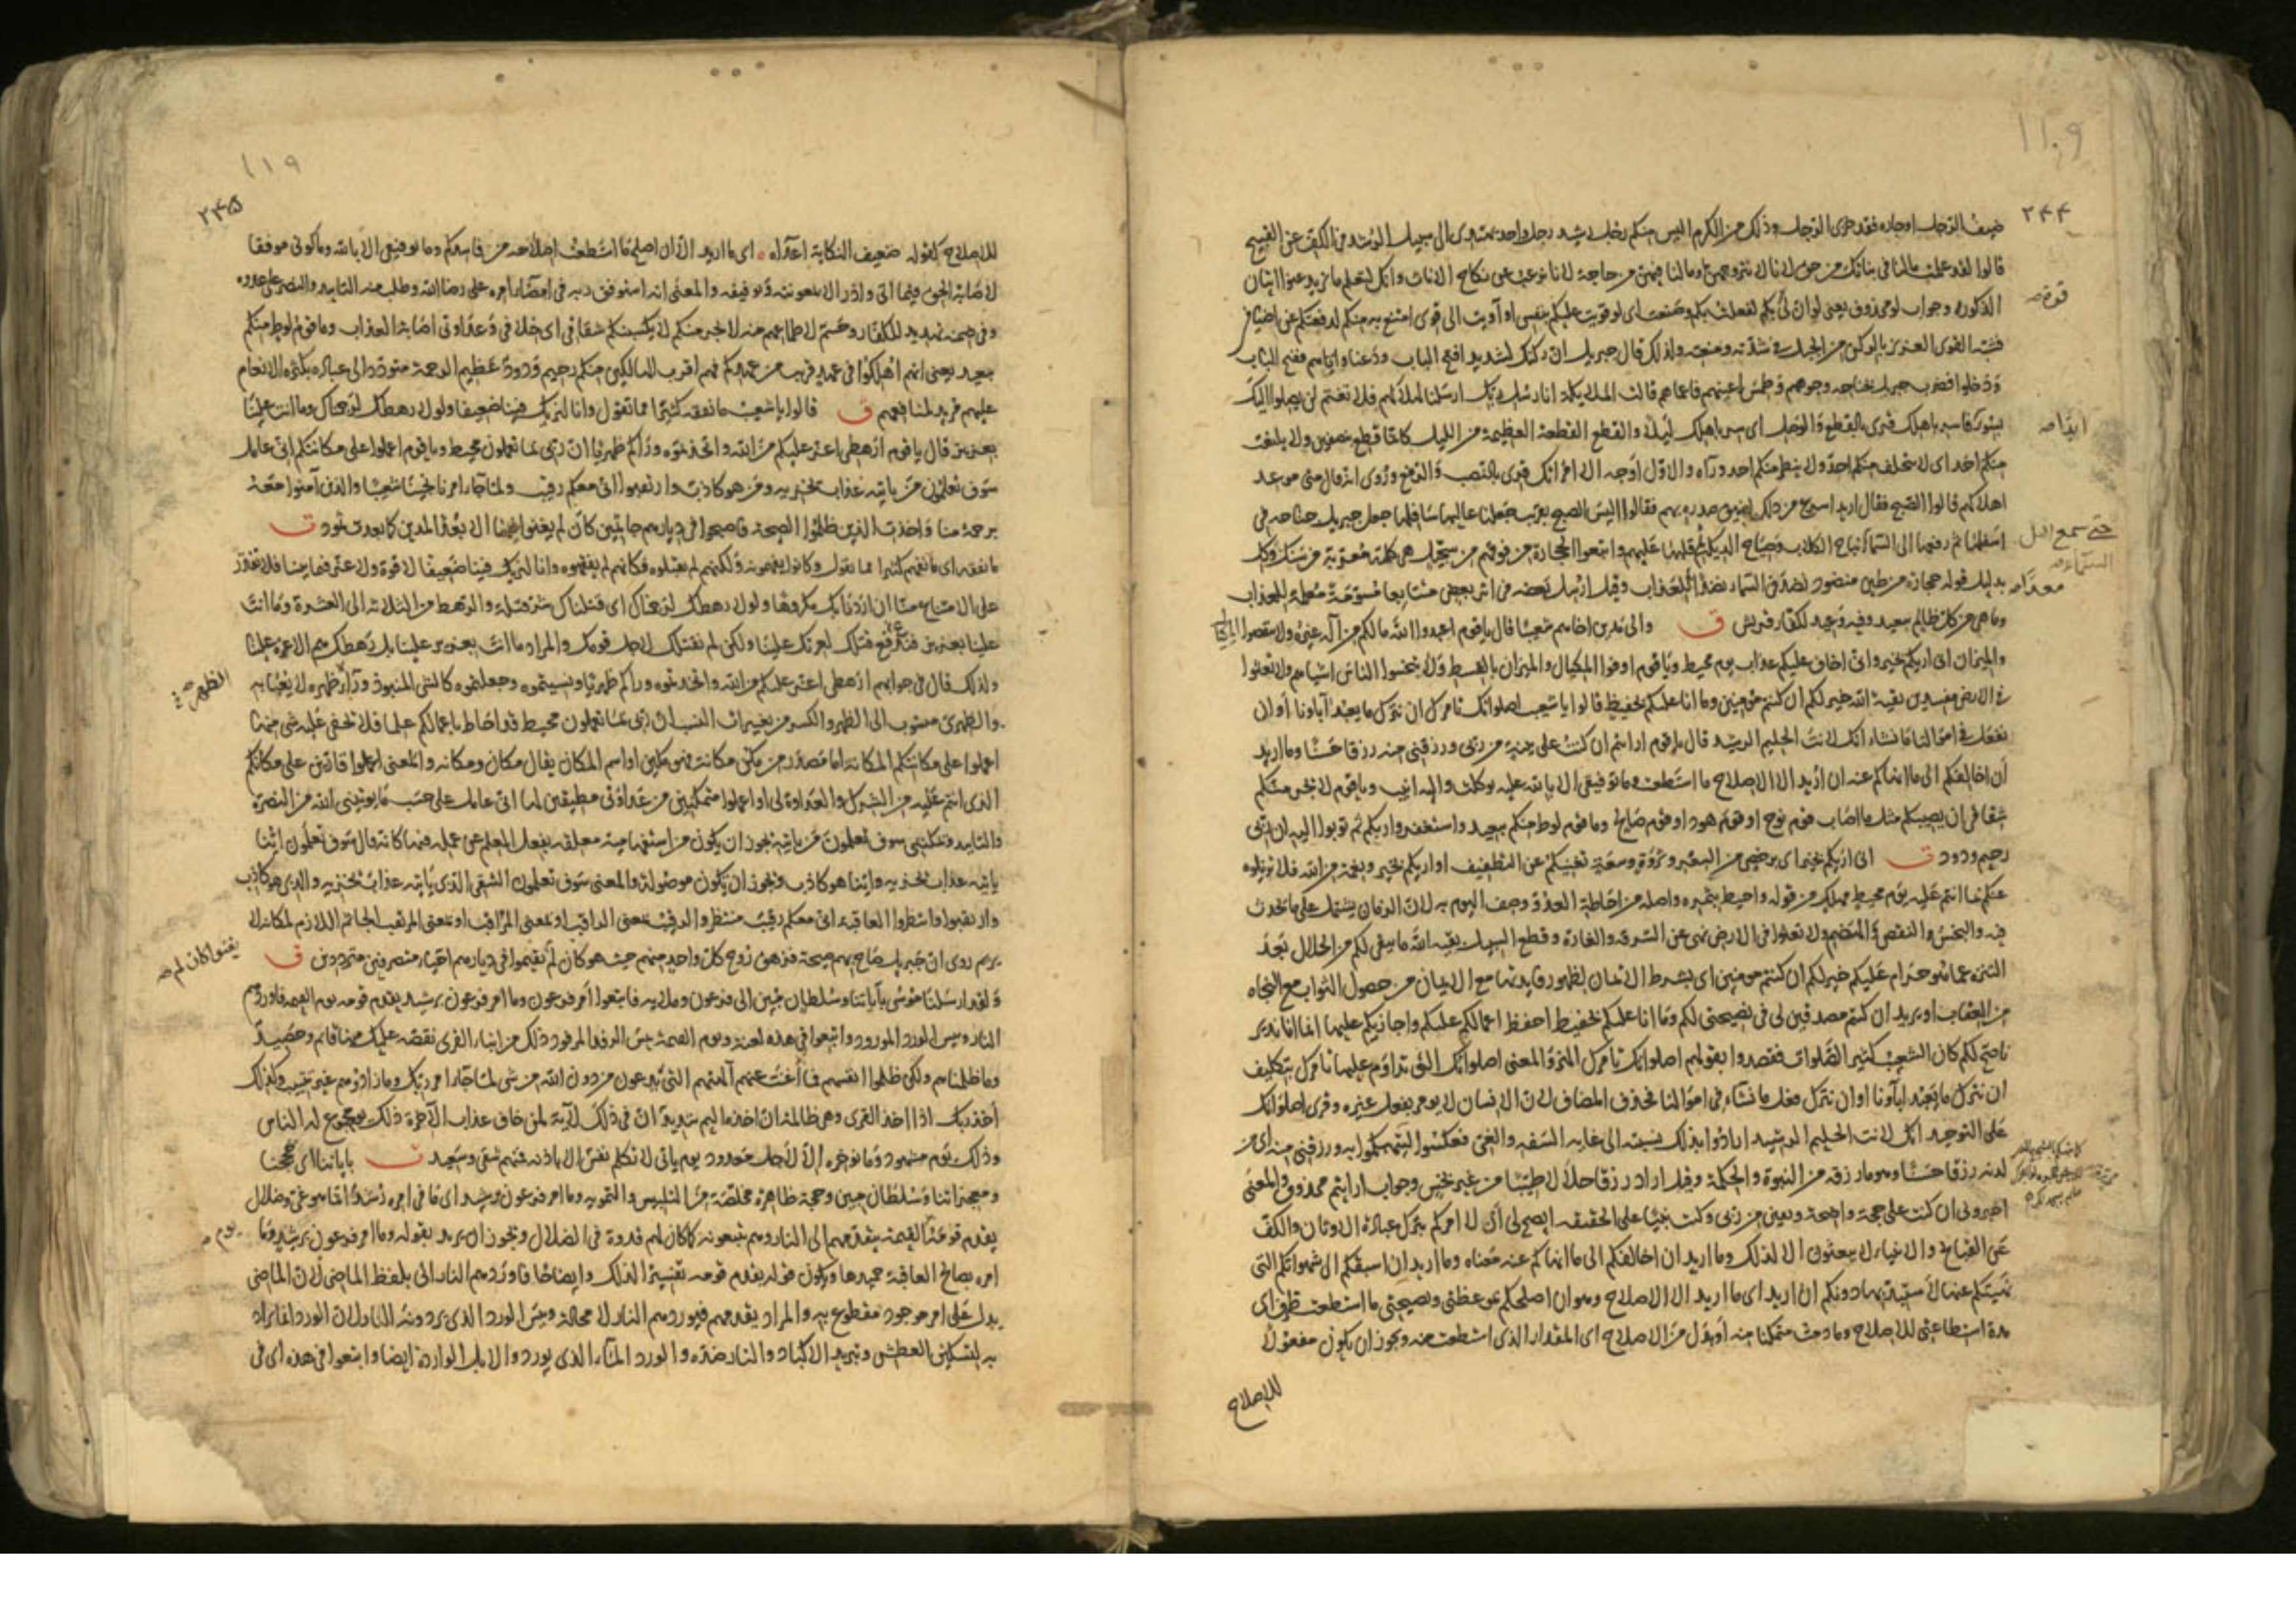 ٢٤٤
ضيف الرجل اوجاره فقد خزى الرجل وذلك من الكرم اليس منكم رجل رشيد رجل واحد يهتدى الى سبيل الرشد فى الكف عن القبيح
قالوا لقد علمت مالنا فى بناتك من حق لانا لا نتزوجهن ومالنا فيهن من حاجة لانا نرغب عن نكاح الاناث وانك لتعلم ما نريد عنوا اتيان
الذكور وجواب لو محذوف يعنى لو ان لى بكم لفعلت بكم وصنعت اى لو قويت عليكم بنفسى او آويت الى قوى امتنع به منكم لدفعتكم عن اضيافى
قوة
فشبه القوى العزيز بالركن من الجبل فى شدته ومنعته ولذلك قال جبريل ان ركنك لشديد افتح الباب ودعنا واياهم ففتح الباب
ودخلوا فضرب جبريل بجناحه وجوههم فطمس اعينهم فاعماهم قالت الملائكة انا رسل ربك ارسلنا لهلاكهم فلا تغتم لن يصلوا اليك
بسوء فاسر باهلك قرى بالقطع والوصل اى سر باهلك ليلا والقطع القطعة العظيمة من الليل كانها قطع نصفين ولا يلتفت
ابدا
منكم احد اى لا يتخلف منكم احد ولا ينظر منكم احد وراه والاول اوجه الا امراتك قرى بالنصب والرفع وروى انه قال متى موعد
اهلاكهم قالوا الصبح فقال اريد اسرع من ذلك لضيق صدره بهم فقالوا اليس الصبح بقريب جعلنا عاليها سافلها جعل جبريل جناحه فى
اسفلها ثم رفعها الى السماء نباح الكلاب وصياح الديكة ثم قلبها عليهم واتبعوا الحجارة من فوقهم من سجيل هى كلمة معربة من سنگ وگل
حتى سمع اهل السماء
بدليل قوله حجارة من طين منضود نضد فى السماء نضدا للعذاب وقيل ارسل بعضه فى اثر بعض متتابعا مسومة معلمة للعذاب
معدا
وما هى من كل ظالم ببعيد وفيه وعيد لكفار قريش ق والى مدين اخاهم شعيبا قال ياقوم اعبدوا الله مالكم من اله غيره ولا تنقصوا المكيال
والميزان انى اريكم بخير وانى اخاف عليكم عذاب يوم محيط وياقوم اوفوا المكيال والميزان بالقسط ولا تبخسوا الناس اشياهم ولا تعثوا
فى الارض مفسدين بقية الله خير لكم ان كنتم مؤمنين وما انا عليكم بحفيظ قالوا ياشعيب اصلوتك تامرك ان نترك ما يعبد آباونا او ان
نفعل فى اموالنا مانشاء انك لانت الحليم الرشيد قال ياقوم ارايتم ان كنت على بينة من ربى ورزقنى منه رزقا حسنا وما اريد
ان اخالفكم الى ما انهاكم عنه ان اريد الا الاصلاح ما استطعت وما توفيقى الا بالله عليه توكلت واليه انيب وياقوم لا يجرمنكم
شقاقى ان يصيبكم مثل ما اصاب قوم نوح او قوم هود او قوم صالح وما قوم لوط منكم ببعيد واستغفروا ربكم ثم توبوا اليه ان ربى
رحيم ودود ت انى اريكم بخير اى برخص من السعر وثروة وسعة تغنيكم عن التطفيف او اريكم بخير ونعمة من الله فلا تزيلوه
عنكم بما انتم عليه يوم محيط مهلك من قوله واحيط بثمره واصله من احاطة العدو وصف اليوم به لان الزمان يشتمل على ما يحدث
فيه والبخس والنقص الهضم ولا تعثوا فى الارض نهى عن السرقة والغارة وقطع السبيل بقية الله ما يبقى لكم من الحلال بعد
التنزه عما هو حرام عليكم خير لكم ان كنتم مومنين اى بشرط الايمان لظهور فايدتها مع الايمان من حصول الثواب مع النجاة
من العقاب او يريد ان كنتم مصدقين لى فى نصيحتى لكم وما انا عليكم بحفيظ احفظ اعمالكم عليكم واجازيكم عليها انما انا نذير
ناصح لكم كان الشعيب كثير الصلوات فقصدوا بقولهم اصلوتك تامرك الهزؤ المعنى اصلوتك التى تداوم عليها تامرك بتكليف
ان نترك ما يعبد آباونا او ان نترك فعل ما نشاء فى اموالنا فحذف المضاف لان الانسان لا يومر بفعل غيره وقرى اصلوتك
على التوحيد انك لانت الحليم الرشيد ارادوا بذلك نسبته الى غاية السفه والغى فعكسوا ليتهكموا به ورزقنى منه اى من
لدنه رزقا حسنا وهو مارزقه من النبوة والحكمة وقيل اراد رزقا حلالا طيبا من غير بخس وجواب ارايتم محذوف والمعنى
اخبرونى ان كنت على حجة واضحة ويقين من ربى وكنت نبيا على الحقيقة ايصح لى ان لا امركم بترك عبادة الاوثان والكف
عن القبايح والانبياء لا يبعثون الا لذلك وما اريد ان اخالفكم الى ما انهاكم عنه معناه وما اريد ان اسبقكم الى شهواتكم التى
نهيتكم عنها لاستبد بها دونكم ان اريد اى ما اريد الا الاصلاح وهو ان اصلحكم بموعظتى ونصيحتى ما استطعت ظرف اى
مدة استطاعتى للاصلاح وما دمت متمكنا منه او بدل من الاصلاح اى المقدار الذى استطعت منه ويجوز ان يكون مفعولا
للاصلاح
١١٩
٢٤٥
للاصلاح كقوله ضعيف النكاية اعداه اى ما اريد الا ان اصلح ما استطعت اصلاحه من فاسدكم وما توفيقى الا بالله وما كونى موفقا
لاصابة الحق فيما اتى واذر الا بمعونته وتوفيقه والمعنى انه استوفق ربه فى امضاء امره على رضا الله وطلب منه التاييد والنصر على عدوه
وفى ضمنه تهديد للكفار وحسم لاطماعهم منه لا يجرمنكم لا يكسبنكم شقاقى اى خلافى وعداوتى اصابة العذاب وما قوم لوط منكم
ببعيد يعنى انهم اهلكوا فى عهد قريب من عهدكم فهم اقرب الهالكين منكم رحيم ودود عظيم الرحمة متودد الى عباده بكثرة الانعام
عليهم مريد لمنافعهم ق قالوا ياشعيب ما نفقه كثيرا مما تقول وانا لنريك فينا ضعيفا ولولا رهطك لرجمناك وما انت علينا
بعزيز قال ياقوم ارهطى اعز عليكم من الله واتخذتموه وراكم ظهريا ان ربى بما تعملون محيط وياقوم اعملوا على مكانتكم انى عامل
سوف تعلمون من ياتيه عذاب يخزيه ومن هو كاذب وارتقبوا انى معكم رقيب ولما جاء امرنا نجينا شعيبا والذين آمنوا معه
برحمة منا واخذت الذين ظلموا الصيحة فاصبحوا فى ديارهم جاثمين كان لم يغنوا فيها الا بعدا لمدين كما بعدت ثمود ت
ما نفقه اى ما نفهم كثيرا مما تقول وكانوا يفهمونه ولكنهم لم يقبلوه فكانهم لم يفقهوه وانا لنريك فينا ضعيفا لا قوة ولا عز فيما بيننا فلا تقدر
على الامتناع منا ان اردنا بك مكروها ولولا رهطك لرجمناك اى قتلناك شر قتلة والرهط من الثلاثة الى العشرة وما انت
علينا بعزيز فترفع قتلك لعزتك علينا ولكن لم نقتلك لاجل قومك والمراد ما انت بعزيز علينا بل رهطك هم الاعزة علينا
ولذلك قال فى جوابهم ارهطى اعز عليكم من الله واتخذتموه وراكم ظهريا ونسيتموه وجعلتموه كالشى المنبوذ وراء ظهره لا يعبا به
الظهر
والظهرى منسوب الى الظهر والكسر من تغييرات النسب ان ربى بما تعملون محيط قد احاط باعمالكم علما فلا تخفى عليه شى منها
اعملوا على مكانتكم المكانة اما مصدر من مكن مكانة فهو مكين او اسم المكان يقال مكان ومكانه والمعنى اعملوا قارين على مكانكم
الذى انتم عليه من الشرك والعداوة لى او اعملوا متمكنين من عداوتى مطيقين لها انى عامل على حسب ما يوتينى الله من النصرة
والتاييد وتمكننى سوف تعلمون من ياتيه يجوز ان يكون من استفهامية معلقة بفعل العلم عن عمله فيها كانه قال سوف تعلمون اينا
ياتيه عذاب يخزيه واينا هو كاذب ويجوز ان يكون موصولة والمعنى سوف تعلمون الشقى الذى ياتيه عذاب يخزيه والذى هو كاذب
وارتقبوا وانتظروا العاقبة انى معكم رقيب منتظر والرقيب بمعنى الراقب او بمعنى المراقب او بمعنى المرتقب الجاثم اللازم لمكانه لا
يريم روى ان جبريل صاح بهم صيحة فزهق روح كل واحد منهم حيث هو كان لم يقيموا فى ديارهم احياء متصرفين مترددين ق
يغنوا كان لم
ولقد ارسلنا موسى بآياتنا وسلطان مبين الى فرعون وملايه فاتبعوا امر فرعون وما امر فرعون برشيد يقدم قومه يوم القيمة فاوردهم
النار وبيس الورد المورود واتبعوا فى هذه لعنة ويوم القيمة بيس الرفد المرفود ذلك من انباء القرى نقصه عليك منها قائم وحصيد
وما ظلمناهم ولكن ظلموا انفسهم فما اغنت عنهم آلهتهم التى يدعون من دون الله من شى لما جاء امر ربك وما زادوهم غير تتبيب وكذلك
اخذ ربك اذا اخذ القرى وهى ظالمة ان اخذه اليم شديد ان فى ذلك لاية لمن خاف عذاب الاخرة ذلك يوم مجموع له الناس
وذلك يوم مشهود وما نوخره الا لاجل معدود يوم ياتى لا تكلم نفس الا باذنه فمنهم شقى وسعيد ت باياتنا اى بحججنا
ومعجزاتنا وسلطان مبين وحجة ظاهرة مخلصة من التلبيس والتمويه وما امر فرعون برشيد اى ما فى امره رشد انما هو غى وضلال
يقدم قومه القيمة يتقدمهم الى النار وهم يتبعونه كما كان لهم قدوة فى الضلال ويجوز ان يريد بقوله وما امر فرعون برشيد وما
يوم
امره بصالح العاقبة حميدها ويكون قوله يقدم قومه تفسيرا لذلك وايضاحا فاوردهم النار اتى بلفظ الماضى لان الماضى
يدل على امر موجود مقطوع به والمراد يقدمهم فيوردهم النار لا محالة وبيس الورد الذى يردونه النار لان الورد انما يراد
به لتسكين العطش وتبريد الاكباد والنار ضده والورد الماء الذى يورد والابل الواردة ايضا واتبعوا فى هذه اى فى